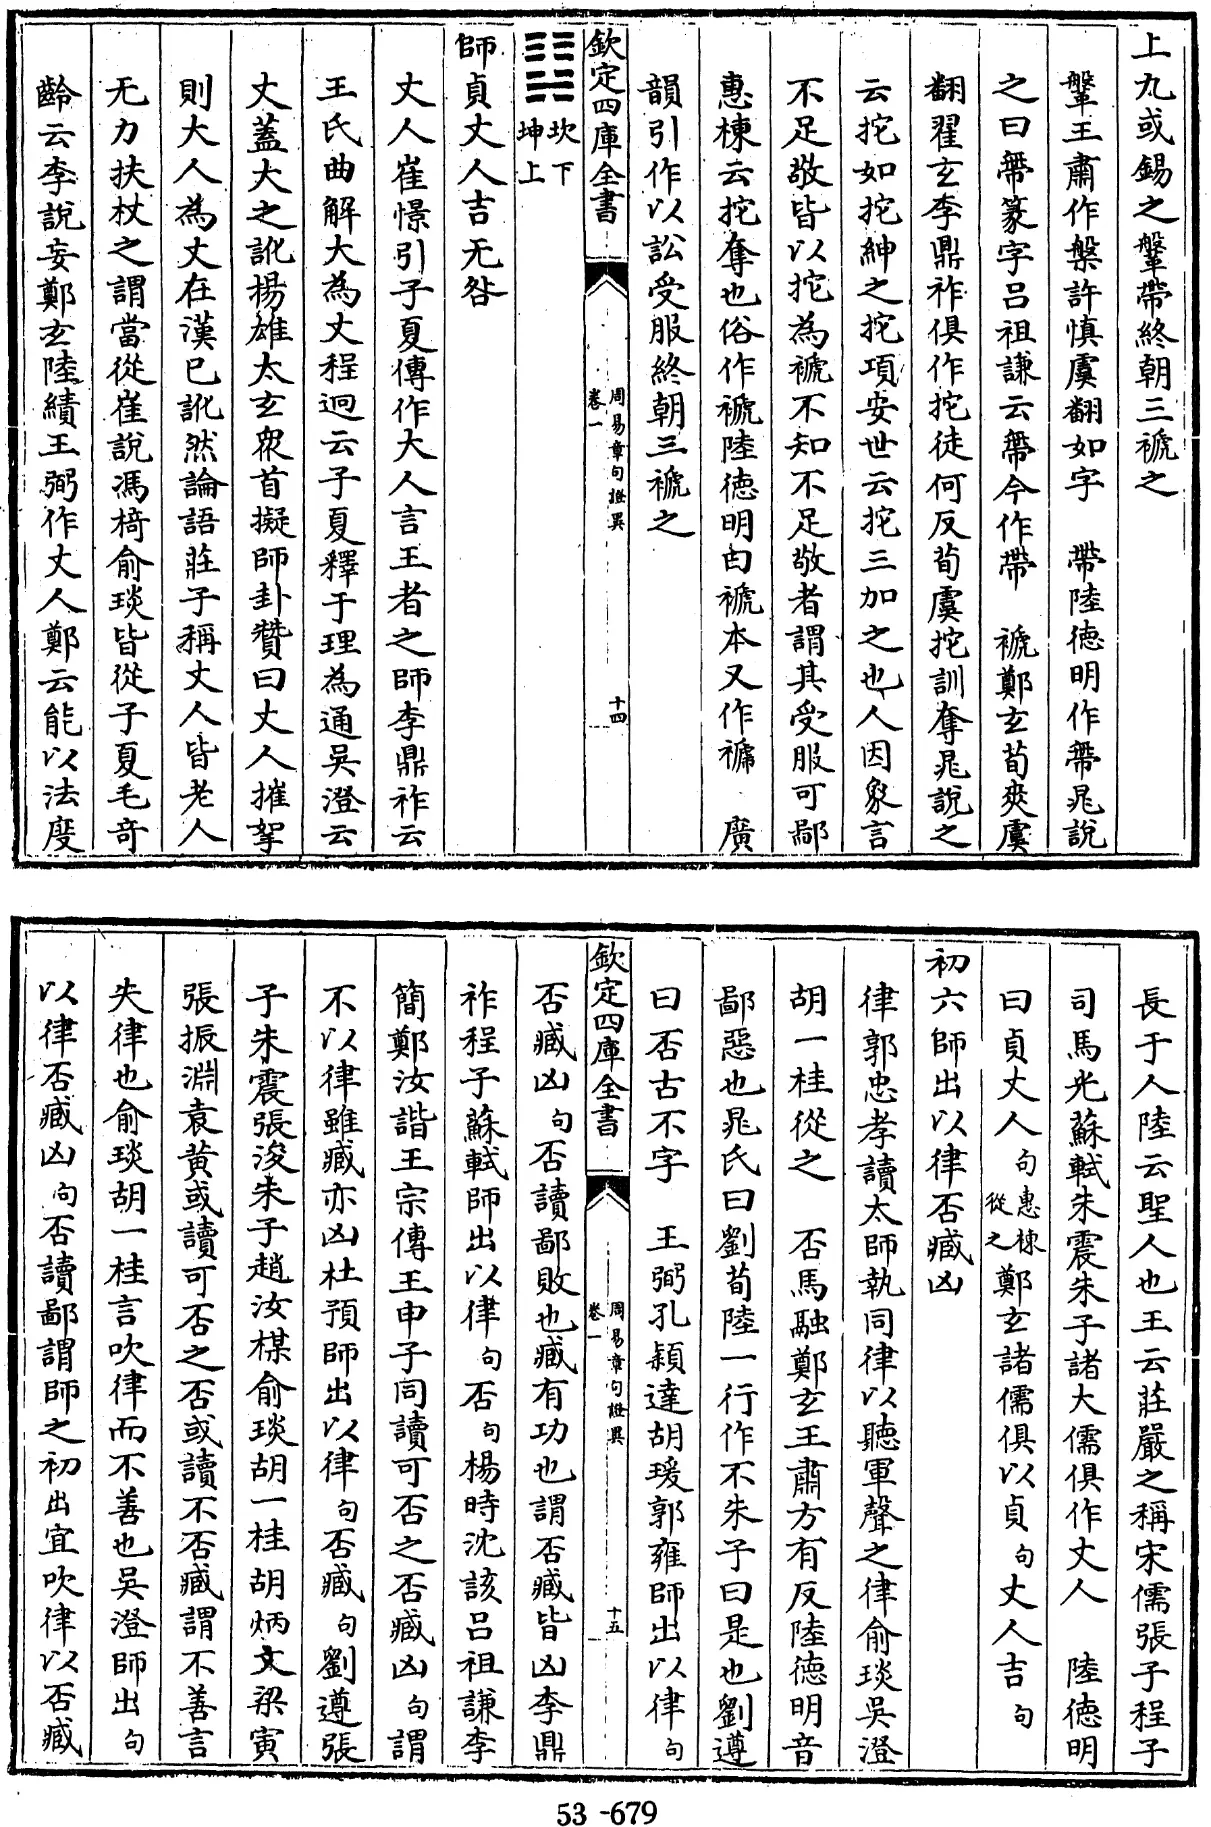 上九或錫之鞶帶終朝三褫之
鞶王肅作槃許慎虞翻如字　帶陸德明作㡜晁說
之曰㡜篆字呂祖謙云㡜今作帶　褫鄭玄荀爽虞
翻翟玄李鼎祚俱作拕徒何反荀虞拕訓奪晁說之
云拕如拕紳之拕項安世云拕三加之也人因象言
不足敬皆以拕為褫不知不足敬者謂其受服可鄙
惠棟云拕奪也俗作褫陸德明曰褫本又作褫　廣
韻引作以訟受服終朝三褫之
欽定四庫全書
周易章句證異
卷一
十四
䷆坎下
坤上
師貞丈人吉无咎
丈人崔憬引子夏傳作大人言王者之師李鼎祚云
王氏曲解大為丈程迥云子夏釋于理為通吳澄云
丈蓋大之訛楊雄太玄衆首擬師卦贊曰丈人摧拏
則大人為丈在漢已訛然論語莊子稱丈人皆老人
无力扶杖之謂當從崔說馮椅俞琰皆從子夏毛奇
齡云李說妄鄭玄陸績王弼作丈人鄭云能以法度
長于人陸云聖人也王云莊嚴之稱宋儒張子程子
司馬光蘇軾朱震朱子諸大儒俱作丈人　陸德明
曰貞丈人句惠棟從之鄭玄諸儒俱以貞句丈人吉句
初六師出以律否臧凶
律郭忠孝讀太師執同律以聽軍聲之律俞琰吳澄
胡一桂從之　否馬融鄭玄王肅方有反陸德明音
鄙惡也晁氏曰劉荀陸一行作不朱子曰是也劉遵
曰否古不字　王弼孔穎達胡瑗郭雍師出以律句
欽定四庫全書
周易章句證異
卷一
十五
否臧凶句否讀鄙敗也臧有功也謂否臧皆凶李鼎
祚程子蘇軾師出以律句否句楊時沈該呂祖謙李
簡鄭汝諧王宗傳王申子同讀可否之否臧凶句謂
不以律雖臧亦凶杜預師出以律句否臧句劉遵張
子朱震張浚朱子趙汝楳俞琰胡一桂胡炳文梁寅
張振淵袁黃或讀可否之否或讀不否臧謂不善言
失律也俞琰胡一桂言吹律而不善也吳澄師出句
以律否臧凶句否讀鄙謂師之初出宜吹律以否臧
53-679